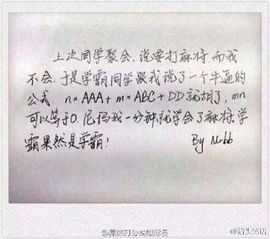 上次同学聚会,说要打麻将而我
不会.于是学霸同学跟我说了一个牛逼的
公式 n×AAA+m×ABC+DD就胡了,mn
可以等于0.尼玛我一分钟就学会了麻将.学
霸果然是学霸! By